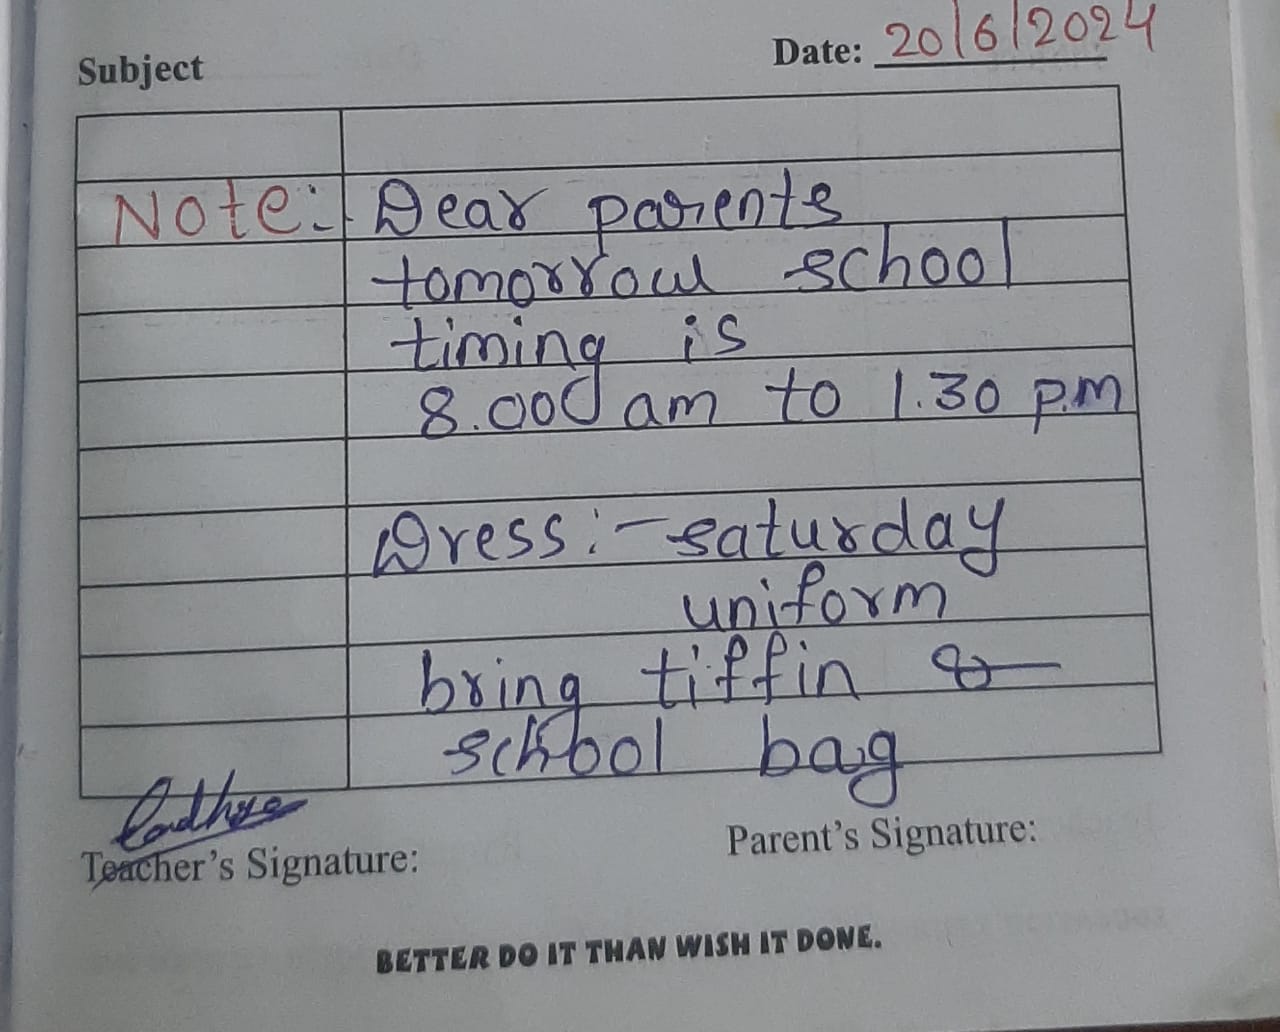 Subject Date: 20/6/2024
Note:- Dear parents
tomorrow school
timing is
8.00 am to 1.30 p.m
Dress:- saturday
uniform
bring tiffin &
school bag
Teacher's Signature: Parent's Signature:
BETTER DO IT THAN WISH IT DONE.